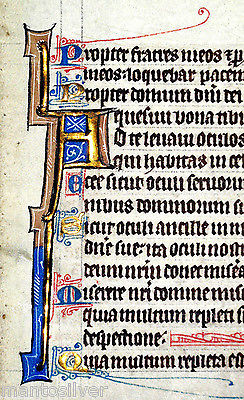 Propter fratres meos & p
meos: loquebar pacem
Propter domum dn̄i dei
quesiui bona tibi
Ad te leuaui oculos
qui habitas in cel
Ecce sicut oculi seruorum
nibus dominorum s
Sicut oculi ancille in ma
due sue: ita oculi nost
deum nr̄m donec miser
Miserere nr̄i domine mis
quia multum repleti s
despectione.
Quia multum repleta est
mantosilver